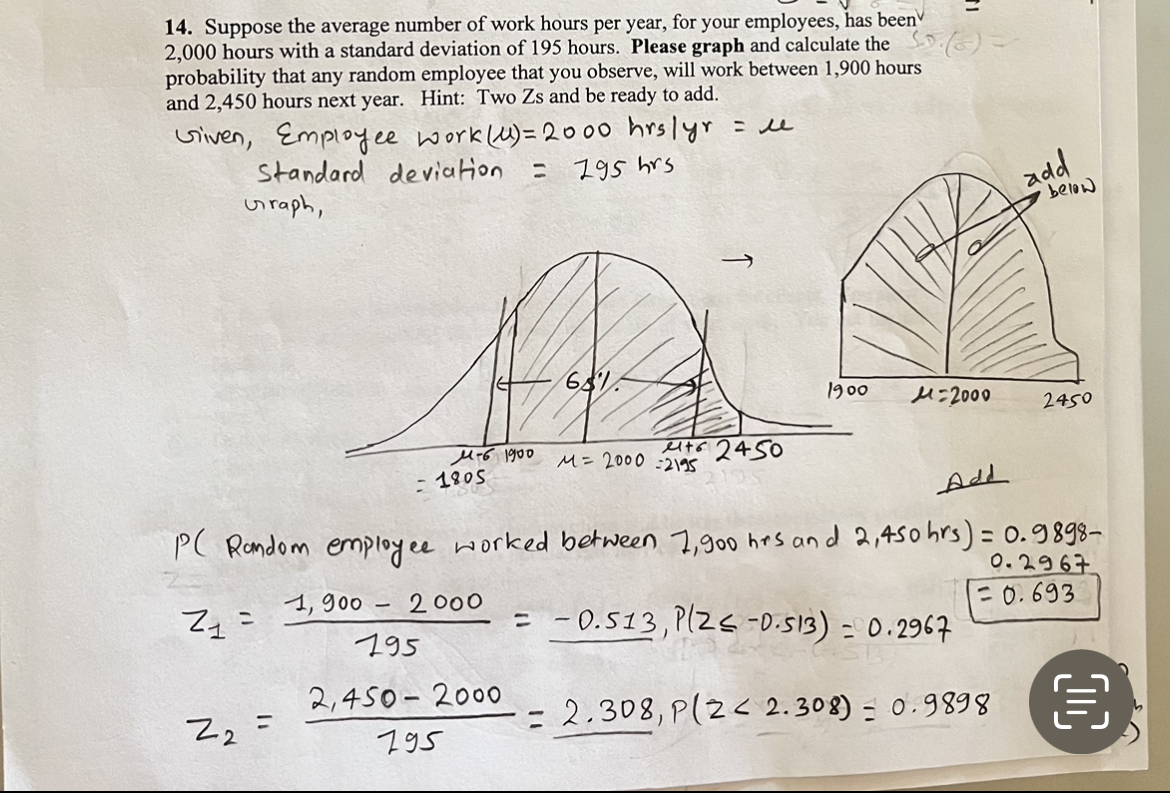 14. Suppose the average number of work hours per year, for your employees, has been
2,000 hours with a standard deviation of 195 hours. Please graph and calculate the
probability that any random employee that you observe, will work between 1,900 hours
and 2,450 hours next year. Hint: Two Zs and be ready to add.
Given, Employee work (μ) = 2000 hrs/yr = μ
Standard deviation = 195 hrs
Graph,
add
below
→
68%
μ-σ 1900 μ = 2000 μ+σ 2450
= 1805 =2195
1900 μ=2000 2450
Add
P( Random employee worked between 1,900 hrs and 2,450 hrs) = 0.9898-
0.2967
= 0.693
Z1 = 1,900 - 2000 / 195 = -0.513, P(Z ≤ -0.513) = 0.2967
Z2 = 2,450 - 2000 / 195 = 2.308, P(Z < 2.308) = 0.9898